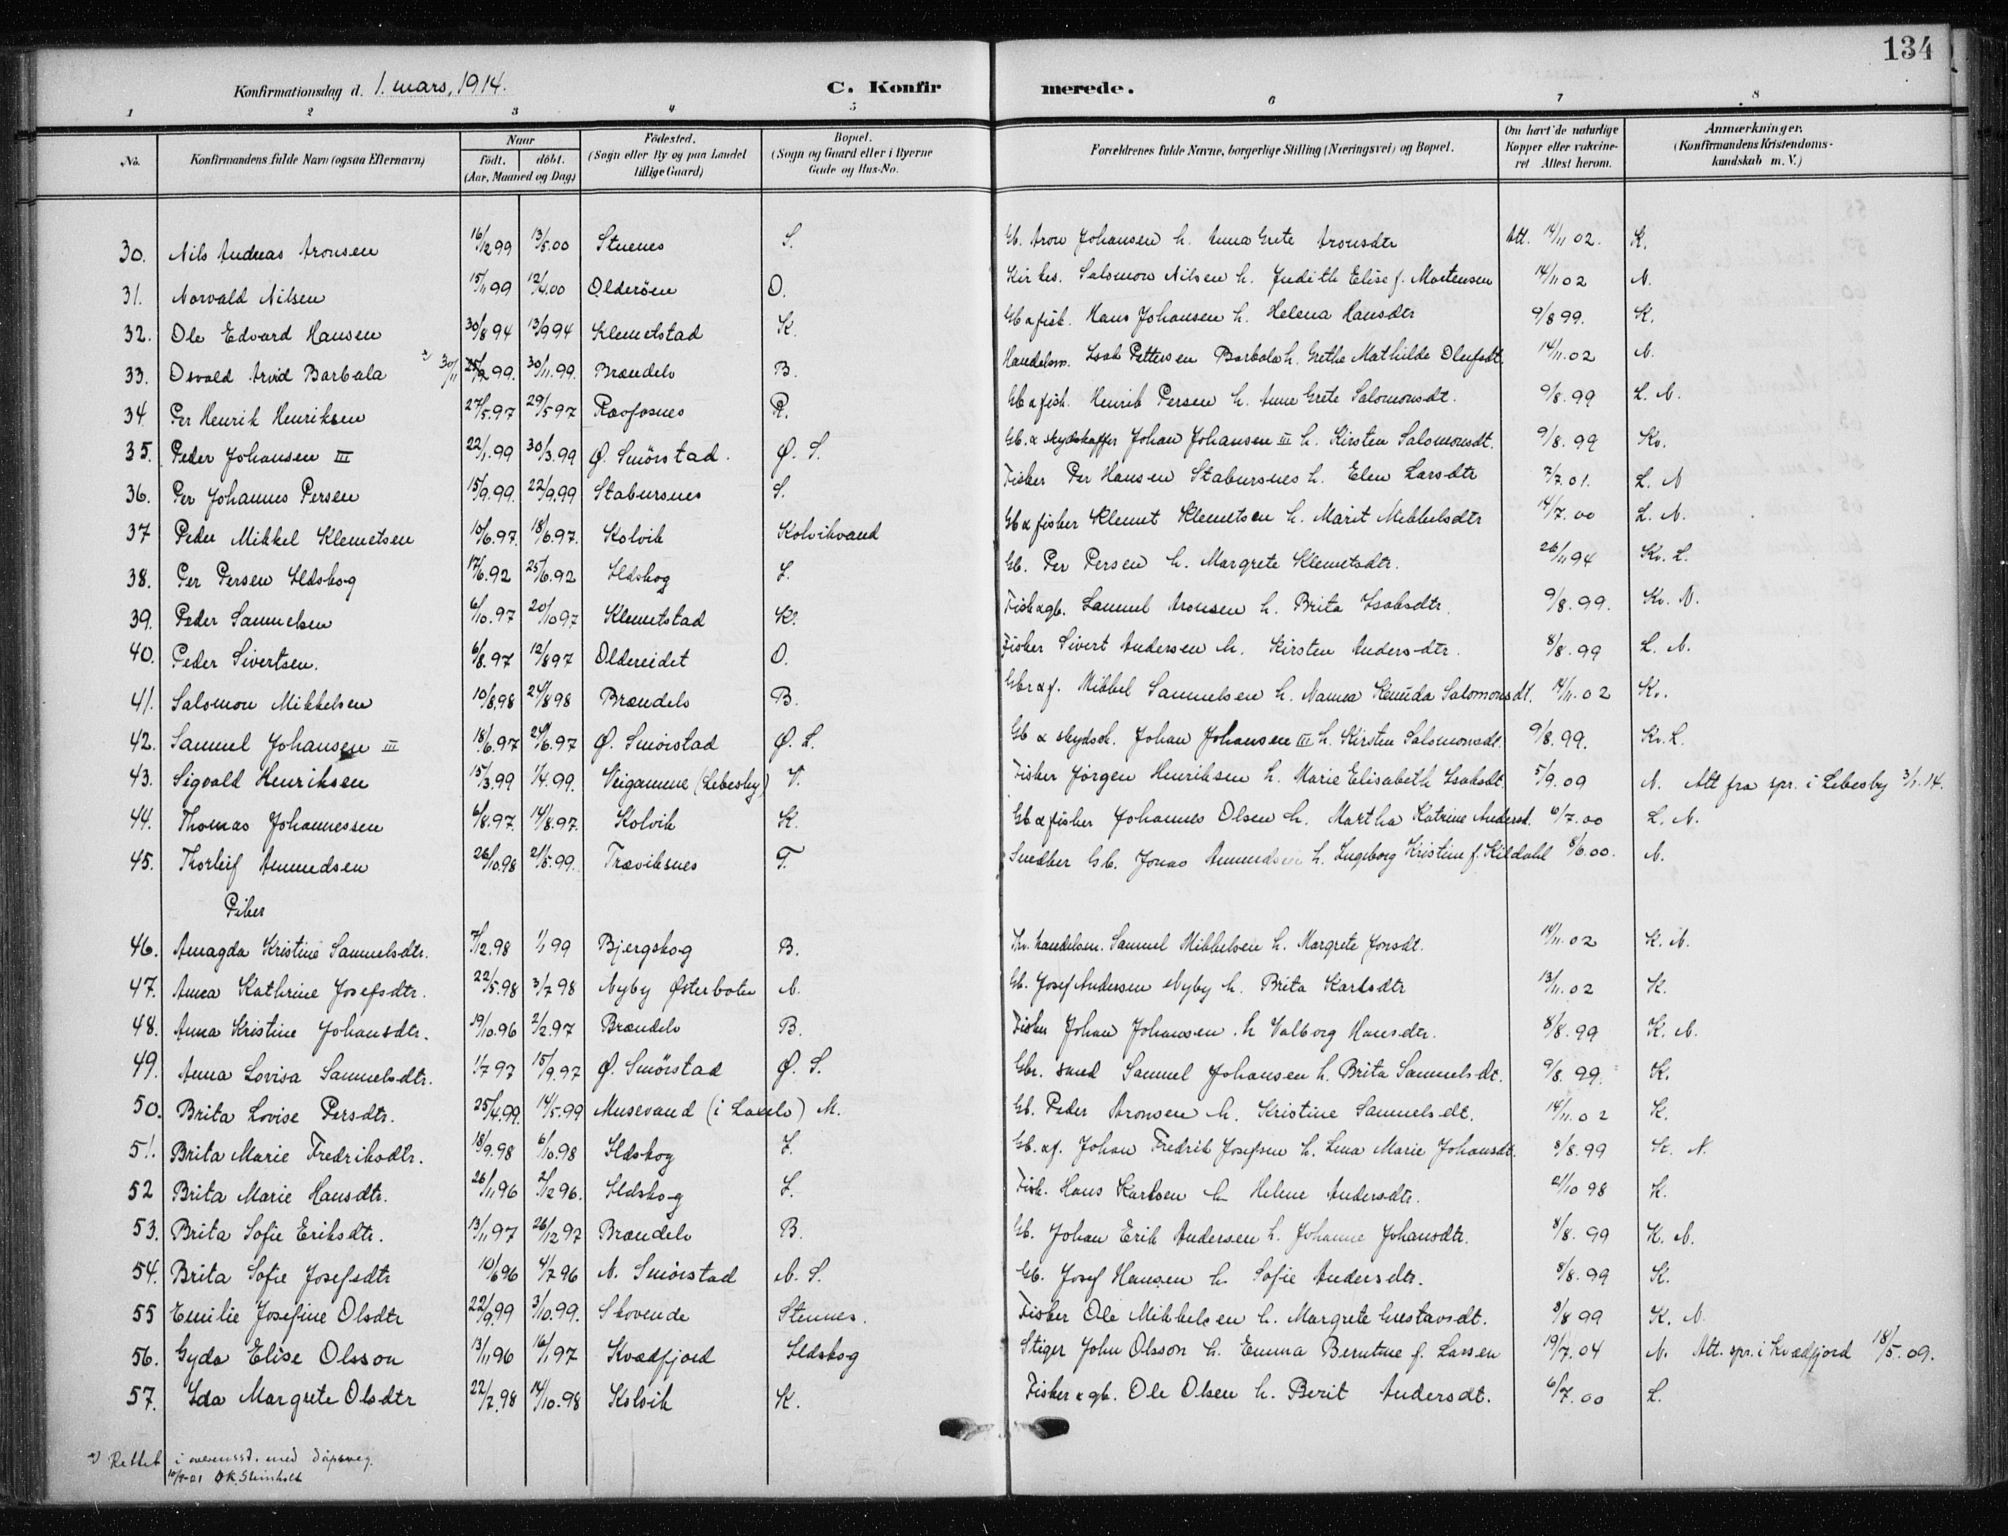 134
Konfirmationsdag d. 1. mars, 1914. C. Konfirmerede.
1 2 3 4 5 6 7 8
No. Konfirmandens fulde Navn (ogsaa Efternavn) Naar født. døbt. (Aar, Maaned og Dag) Fødested. (Sogn eller By og paa Landet tillige Gaard) Bopæl. (Sogn og Gaard eller i Byerne Gade og Hus-No. Forældrenes fulde Navne, borgerlige Stilling (Næringsvei) og Bopæl. Om havt de naturlige Kopper eller vakcineret Attest herom. Anmærkninger. (Konfirmandens Kristendomskundskab m. V.)
30. Nils Andreas Aronsen 16/12 99 13/5.00 Stuenes S. Gb. Aron Johansen h. Anna Grete Aronsdtr Att. 14/11 02. K.
31. Norvald Nilsen 15/11 99 12/4.00 Olderöen O. Kirkes. Salomon Nilsen h. Judith Elise f. Mortensen 14/11 02 N.
32. Ole Edvard Hansen 30/8 94 13/9 94 Klemetstad K. Gb & fisk. Hans Johansen h. Helena Hansdtr 9/8 99. K.
33. Osvald Arvid Barbala *) 30/11 25/9 99. 30/11.99. Brændelv B. Handelsm. Isak Pettersen Barbala h. Grethe Mathilde Olufsdt. 14/11.02 N.
34 Per Henrik Henriksen 27/5.97 29/5 97 Ravfosnes R. Gb & fisk. Henrik Persen h. Anne Grete Salomonsdt. 9/8.99 L. N.
35. Peder Johansen III 22/1.99 30/3.99 Ø. Smörstad. Ø. S. Gb. & skydskaffer Johan Johansen III h. Kirsten Salomonsdt. 9/8.99 Kv.
36. Per Johannes Persen 15/9.99. 22/9.99 Stabursnes S. Fisker Per Hansen Stabursnes h. Elen Larsdtr 7/7.01. L. N
37 Peder Mikkel Klemetsen 10/6.97. 18/6.97. Kolvik Kolvikvand Gb & fisker Klemet Klemetsen h. Marit Mikkelsdtr 14/7.00 L. N.
38. Per Persen Ildskog 17/6.92 25/6.92 Ildskog I. Gb. Per Persen h. Margrete Klemetsdtr. 26/11 94 Kv. L.
39. Peder Samuelsen 6/10.97 20/10 97 Klemetstad K. Fisk & gb. Samuel Aronsen h. Brita Isaksdtr. 9/8.99. Kv. N.
40. Peder Sivertsen. 6/8.97 12/8 97 Oldereidet O. Fisker Sivert Andersen h. Kirsten Andersdtr. 8/8.99 L. N.
41. Salomon Mikkelsen 10/8.98 24/8 98 Brændelv B. Gbr & f. Mikkel Samuelsen h. Nanna Knuda Salomonsdt. 14/11.02 Kv.
42. Samuel Johansen III 18/6.97 24/6.97 Ø. Smörstad Ø. S. Gb & skydssk. Johan Johansen III h. Kirsten Salomonsdt. 9/8.99. Kv. L.
43. Sigvald Henriksen 15/3.99 1/4.99. Veigamme (Lebesby) V. Fisker Jörgen Henriksen h. Marie Elisabeth Isaksdt. 5/9.09 N. Att fra spr. i Lebesby 3/1.14.
44. Thomas Johannessen 6/8.97. 14/8.97. Kolvik K. Gb & fisker Johannes Olsen h. Martha Katrine Andersd. 6/7.00 L. N.
45. Thorleif Amundsen 26/10.98 21/5.99. Træviksnes T. Snedker Gb. Jonas Amundsen h. Ingeborg Kristine f. Kildahl 8/6.00. N.
Piker
46. Amagda Kristine Samuelsdtr. 7/12.98 1/1 99 Bjergskog B. Kv. handelsm. Samuel Mikkelsen h. Margrete Jonsdt. 14/11.02 K. N.
47. Anna Kathrine Josefsdtr. 22/5.98 3/7 98 Nyby Østerbotn N. Gb. Josef Andersen Nyby h. Brita Karlsdtr 13/11.02 K.
48. Anna Kristine Johansdtr. 19/10.96 2/2.97 Brændelv B. Fisker Johan Johansen. h Valborg Hansdtr. 8/8.99 K. N.
49. Anna Lovisa Samuelsdtr. 1/7 97 15/9.97 Ø. Smörstad Ø. S. Gbr. Samuel Johansen h. Brita Samuelsdt. 9/8.99. K.
50. Brita Lovise Persdtr. 25/4.99. 14/5.99 Musevand (i Laxelv) M. Gb. Peder Aronsen h. Kristine Samuelsdt. 14/11.02 K.
51. Brita Marie Fredriksdtr. 18/9.98 6/10.98 Ildskog I. Gb. & f. Johan Fredrik Josefsen h. Lina Marie Johansdt. 8/8.99 K. N.
52 Brita Marie Hansdtr. 26/11 96 2/12 96. Ildskog I. Fisk. Hans Karlsen h Helene Andersdtr. 21/10 98 K.
53. Brita Sofie Eriksdtr. 13/11 97 26/12 97 Brændelv B. Gb. Johan Erik Andersen h. Johanne Johansdtr. 8/8. 99 K. N.
54. Brita Sofie Josefsdtr 10/6 96 4/7 96 N. Smörstad N. S. Gb. Josef Hansen h Sofie Andersdtr. 8/8.99 K.
55 Emilie Josefine Olsdtr 22/9.99 3/10.99. Skovende Stennes. Fisker Ole Mikkelsen h. Margrete Gustavsdt. 9/8 99 K. N.
56. Gyda Elise Olsson 13/11 96 16/1 97 Kvædfjord Ildskog Stiger John Olsson h. Emma Berntine f. Larsen 19/7.04 N. Att. spr. i Kvædfjord 18/5.09.
57. Ida Margrete Olsdtr 22/7.98 14/10.98 Kolvik K. Fisker & gb. Ole Olsen h. Berit Andersdt. 6/7.00 L.
*) Rettet i overensst. med dåpsreg.